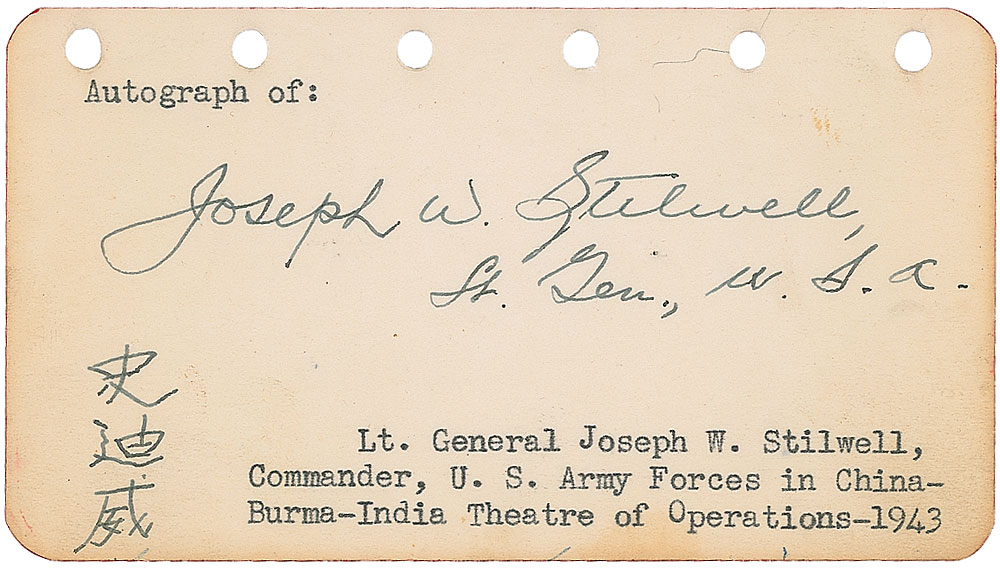 Autograph of:
Joseph W. Stilwell,
Lt. Gen., U. S. A.
史迪威
Lt. General Joseph W. Stilwell,
Commander, U. S. Army Forces in China-
Burma-India Theatre of Operations-1943